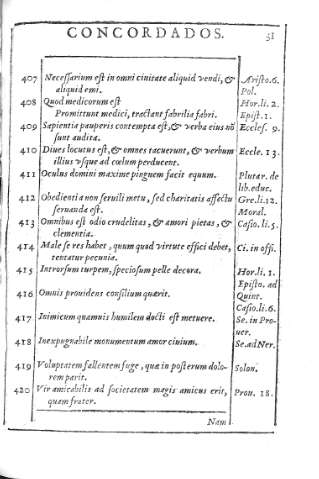 CONCORDADOS. 51
407 Necessarium est in omni ciuitate aliquid vendi, & Aristo.6.
aliquid emi. Pol.
408 Quod medicorum est Hor.li.2.
Promittunt medici, tractant fabrilia fabri. Epist.1.
409 Sapientia pauperis contempta est, & verba eius nō Eccles. 9.
sunt audita.
410 Diues locutus est, & omnes tacuerunt, & verbum Eccle. 13.
illius vsque ad cœlum perducent.
411 Oculus domini maxime pinguem facit equum. Plutar. de
lib.educ.
412 Obedientia non seruili metu, sed charitatis affectu Gre.li.12.
seruanda est. Moral.
413 Omnibus est odio crudelitas, & amori pietas, & Casio.li.5.
clementia.
414 Male se res habet, quum quod virtute effici debet, Ci. in offi.
tentatur pecunia.
415 Introrsum turpem, speciosum pelle decora. Hor.li.1.
Episto. ad
416 Omnis prouidens consilium quærit. Quint.
Casio.li.6.
417 Inimicum quamuis humilem docti est metuere. Se. in Pro-
uer.
418 Inexpugnabile monumentum amor ciuium. Se.adNer.
419 Voluptatem fallentem fuge, quæ in posterum dolo- Solon.
rem parit.
420 Vir amicabilis ad societatem magis amicus erit, Prou. 18.
quam frater.
Nam